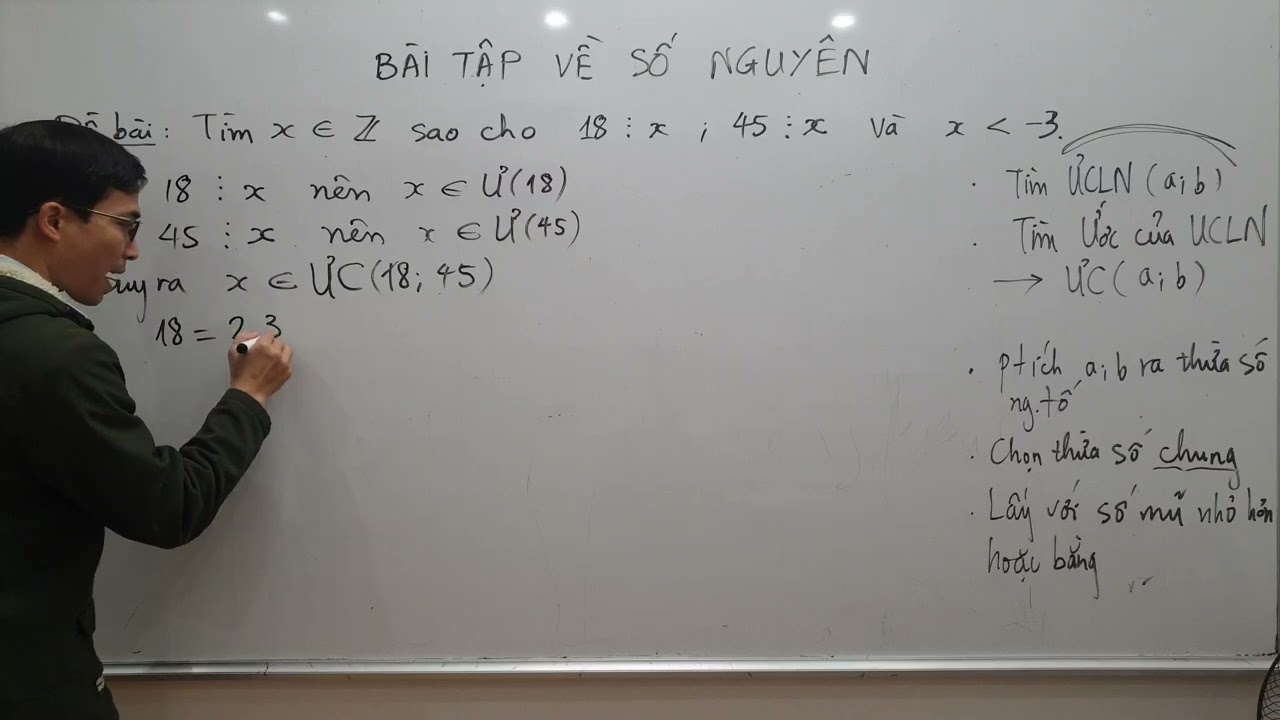 BÀI TẬP VỀ SỐ NGUYÊN
bài: Tìm x ∈ ℤ sao cho 18 ⋮ x ; 45 ⋮ x và x < -3.
18 ⋮ x nên x ∈ Ư(18)
45 ⋮ x nên x ∈ Ư(45)
uy ra x ∈ ƯC(18; 45)
18 = 2.3
. Tìm ƯCLN (a;b)
. Tìm Ước của UCLN
→ ƯC(a;b)
. ptích a;b ra thừa số
ng.tố
. Chọn thừa số chung
. Lấy với số mũ nhỏ hơn
hoặc bằng